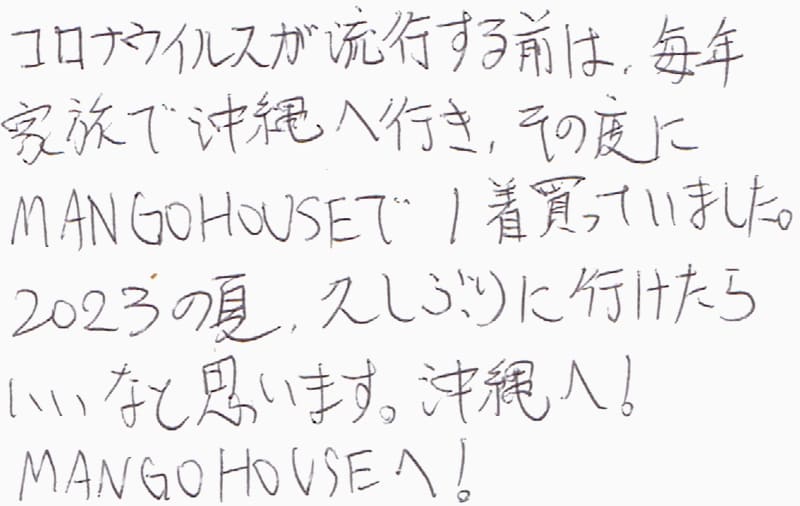 コロナウイルスが流行する前は、毎年
家族で沖縄へ行き、その度に
MANGOHOUSEで1着買っていました。
2023の夏、久しぶりに行けたら
いいなと思います。沖縄へ!
MANGOHOUSEへ!